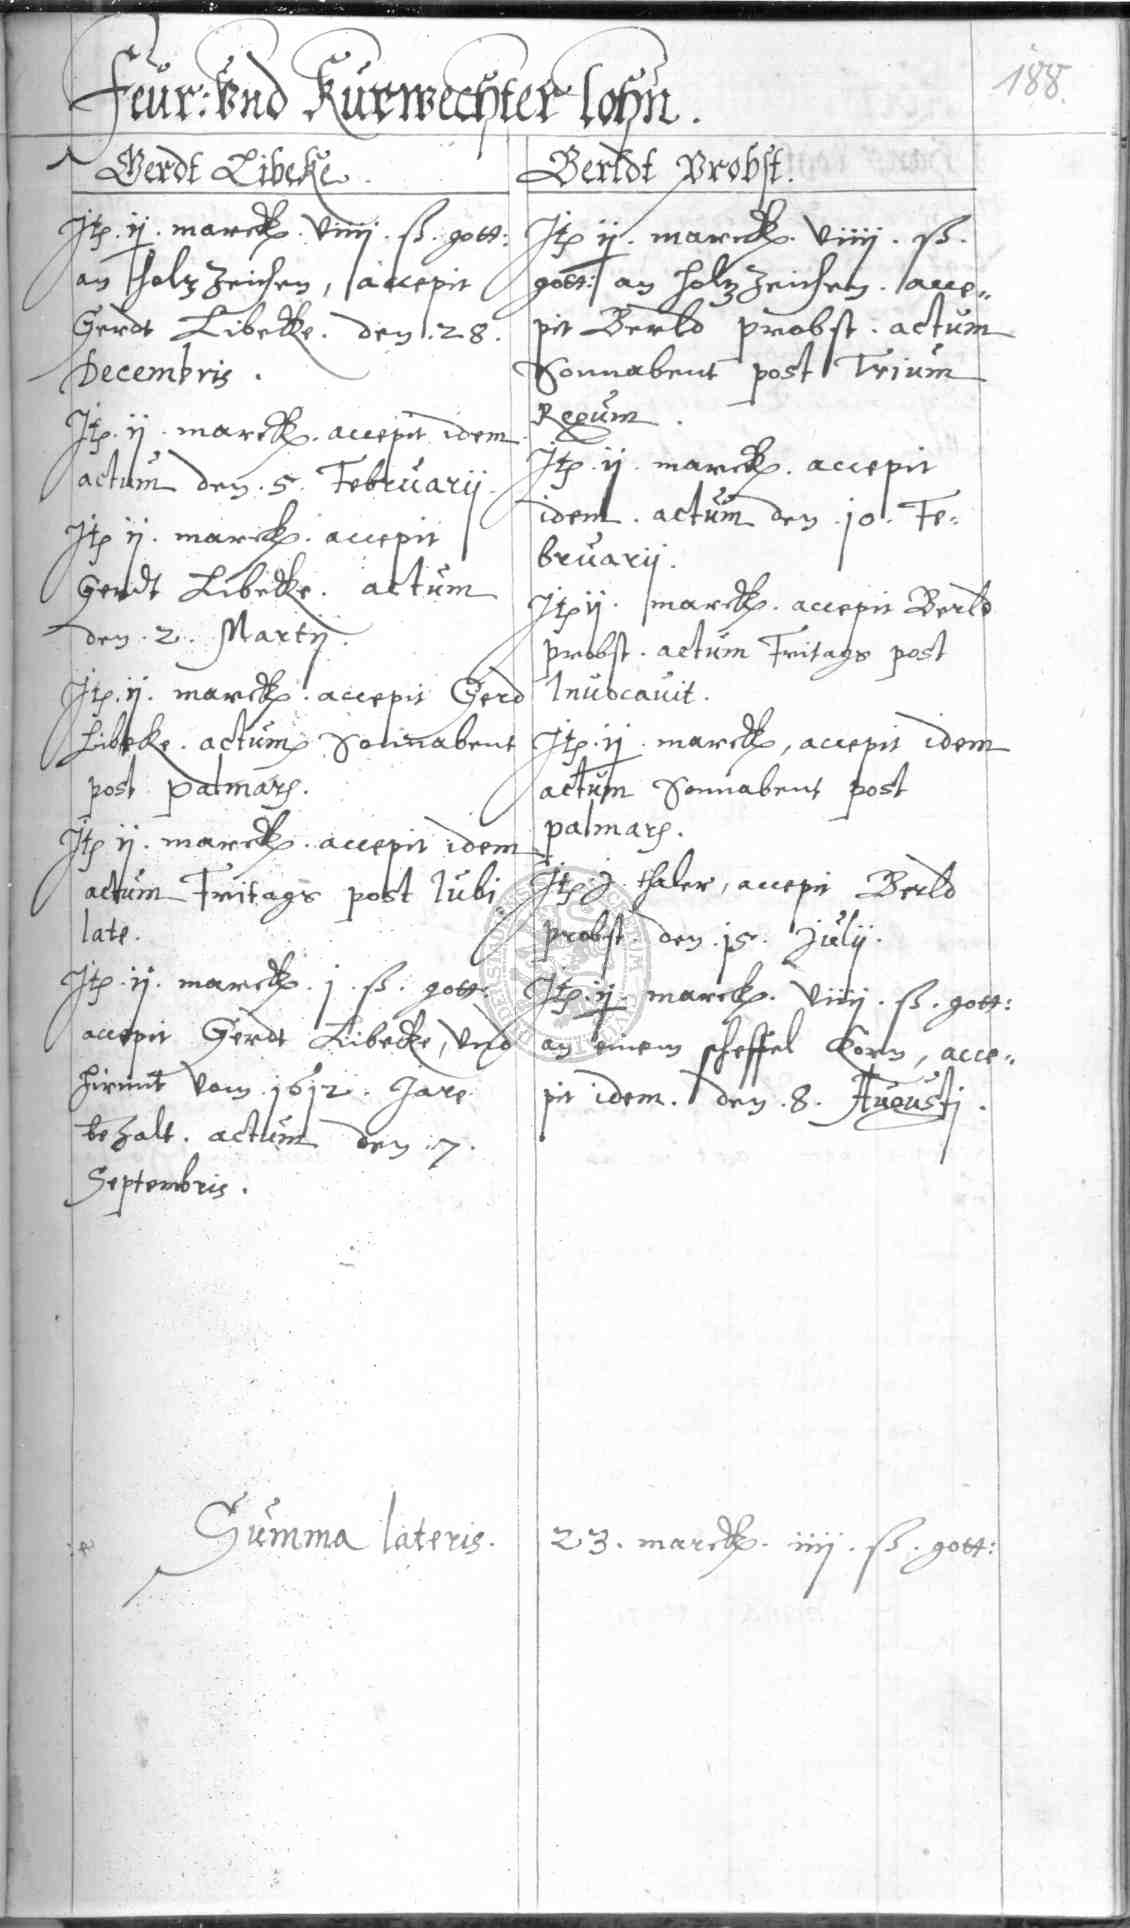 188.
Feur: Vnd Kurwechter lohn.
Gerdt Libeke.
Jtē. ij. marck. viiij. ß. gott:
an holtz Zeichen, accepit
Gerdt Libecke. den. 28.
Decembris.
Jtē. ij. marck. accepit idem
actum den. 5. Februarij.
Jtē ij. marck. accepit
Gerdt Libecke. actum
den. 2. Martij.
Jtē. ij. marck. accepit Gerd
Libecke. actum Sonnabent
post palmarū.
Jtē ij. marck. accepit idem
actum Fritags post Iubi
late.
Jtē. ij. marck. j. ß. gott:
accepit Gerdt Libecke, Vnd
hirmit Vom. 1612. Jare
bezalt. actum den. 7.
Septembris.
Berldt Probst.
Jtē ij. marck. viiij. ß.
gott: an holtz Zeichen. acce„
pit Berld probst. actum
Sonnabent post Trium
Regum.
Jtē. ij. marck. accepit
idem. actum den. 10. Fe„
bruarij.
Jtē ij. marck. accepit Berld
probst. actum Fritags post
Inuocauit.
Jtē. ij. marck, accepit idem
actum Sonnabent post
palmarū.
Jtē. j. thaler, accepit Berld
probst. den. 15. Julij.
Jtē. ij. marck. viiij. ß. gott:
an einem scheffel Korn, acce„
pit idem. den. 8. Augusti.
Summa lateris. 23. marck. iiij. ß. gott: